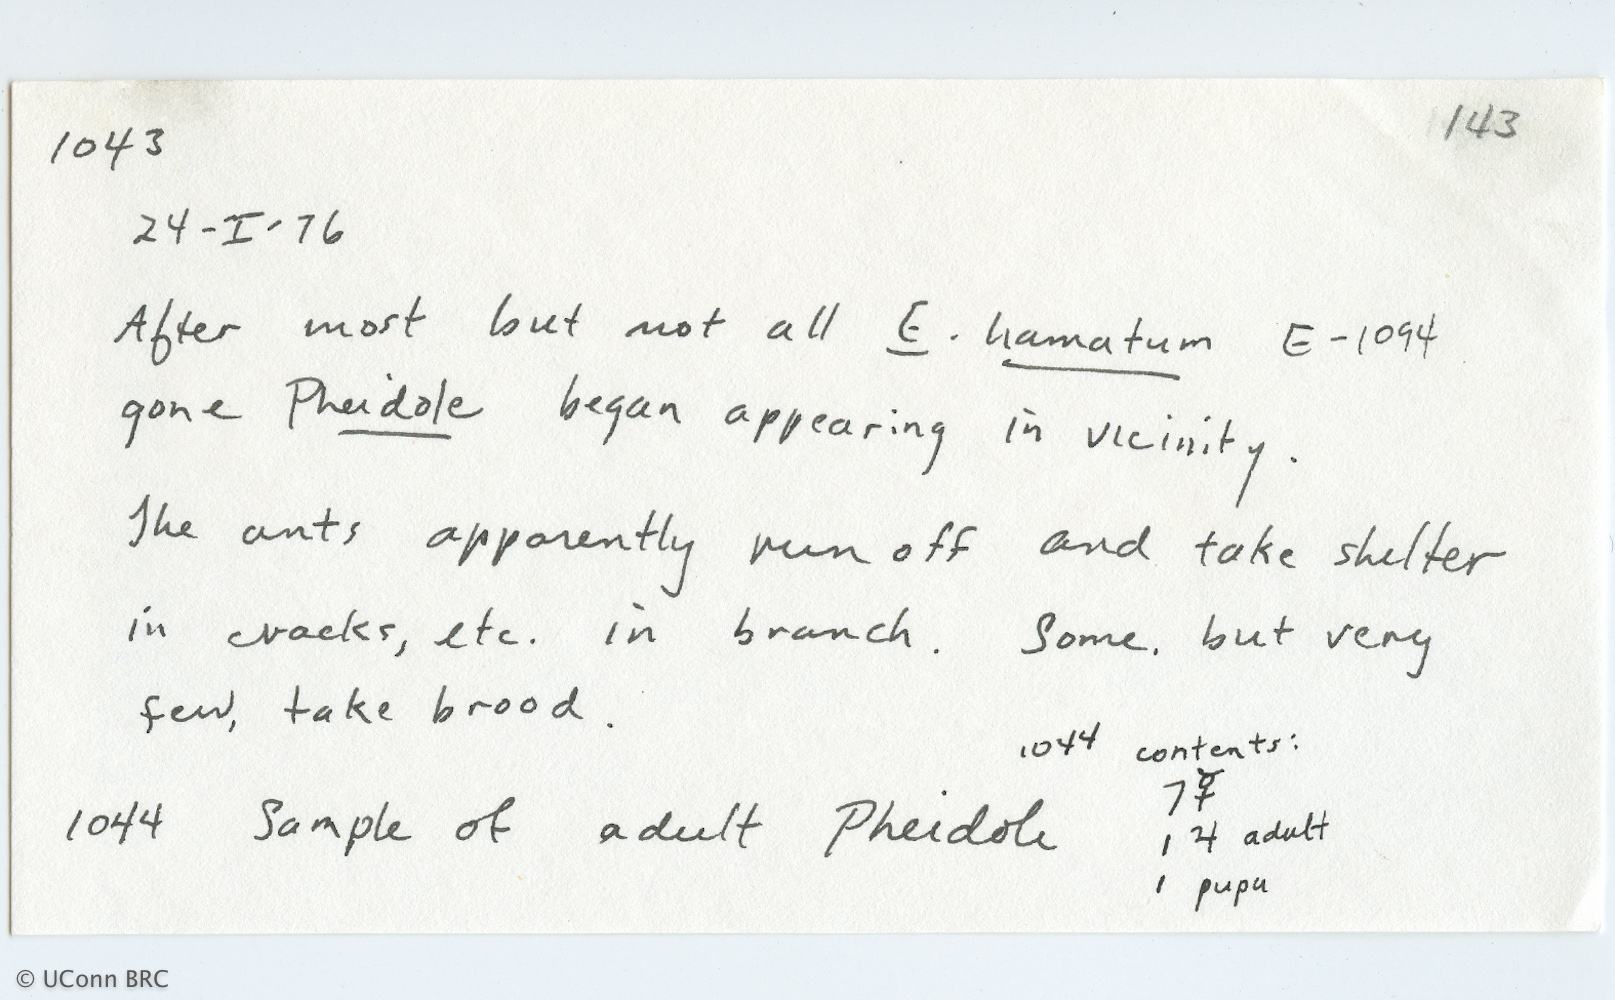 1043
143
24-I-76
After most but not all E. hamatum E-1094
gone Pheidole began appearing in vicinity.
The ants apparently run off and take shelter
in cracks, etc. in branch. Some, but very
few, take brood.
1044 contents:
7 ☿
1 ♃ adult
1 pupa
1044 Sample of adult Pheidole
© UConn BRC